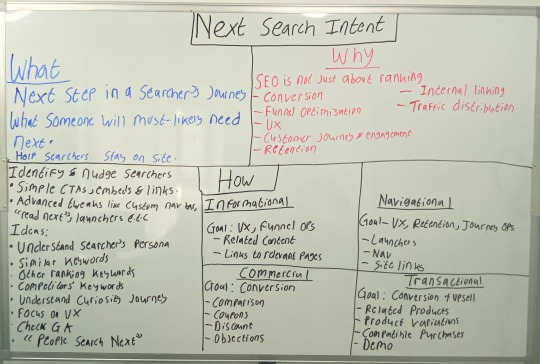 Next Search Intent
What
Next Step in a Searcher's Journey
What Someone will most-likely need
Next.
Help Searchers Stay on Site.
Why
SEO is not Just about ranking
- Conversion
- Funnel Optimisation
- UX
- Customer Journey & engagement
- Retention
- Internal linking
- Traffic distribution
How
Identify & Nudge Searchers
• Simple CTAs, embeds & links.
• Advanced tweaks like custom nav tabs,
"read next", launchers etc
Ideas;
• Understand Searcher's Persona
• Similar Keywords
• Other ranking Keywords
• Competitors' Keywords
• Understand Curiosity Journey
• Focus on UX
• Check GA
• "People Search Next"
Informational
Goal: UX, Funnel OPs
- Related Content
- Links to relevant Pages
Navigational
Goal - UX, Retention, Journey OPs
- Launchers
- Nav
- Site links
Commercial
Goal: Conversion
- Comparison
- Coupons
- Discount
- Objections
Transactional
Goal: Conversion + upsell
- Related Products
- Product variations
- Compatible Purchases
- Demo